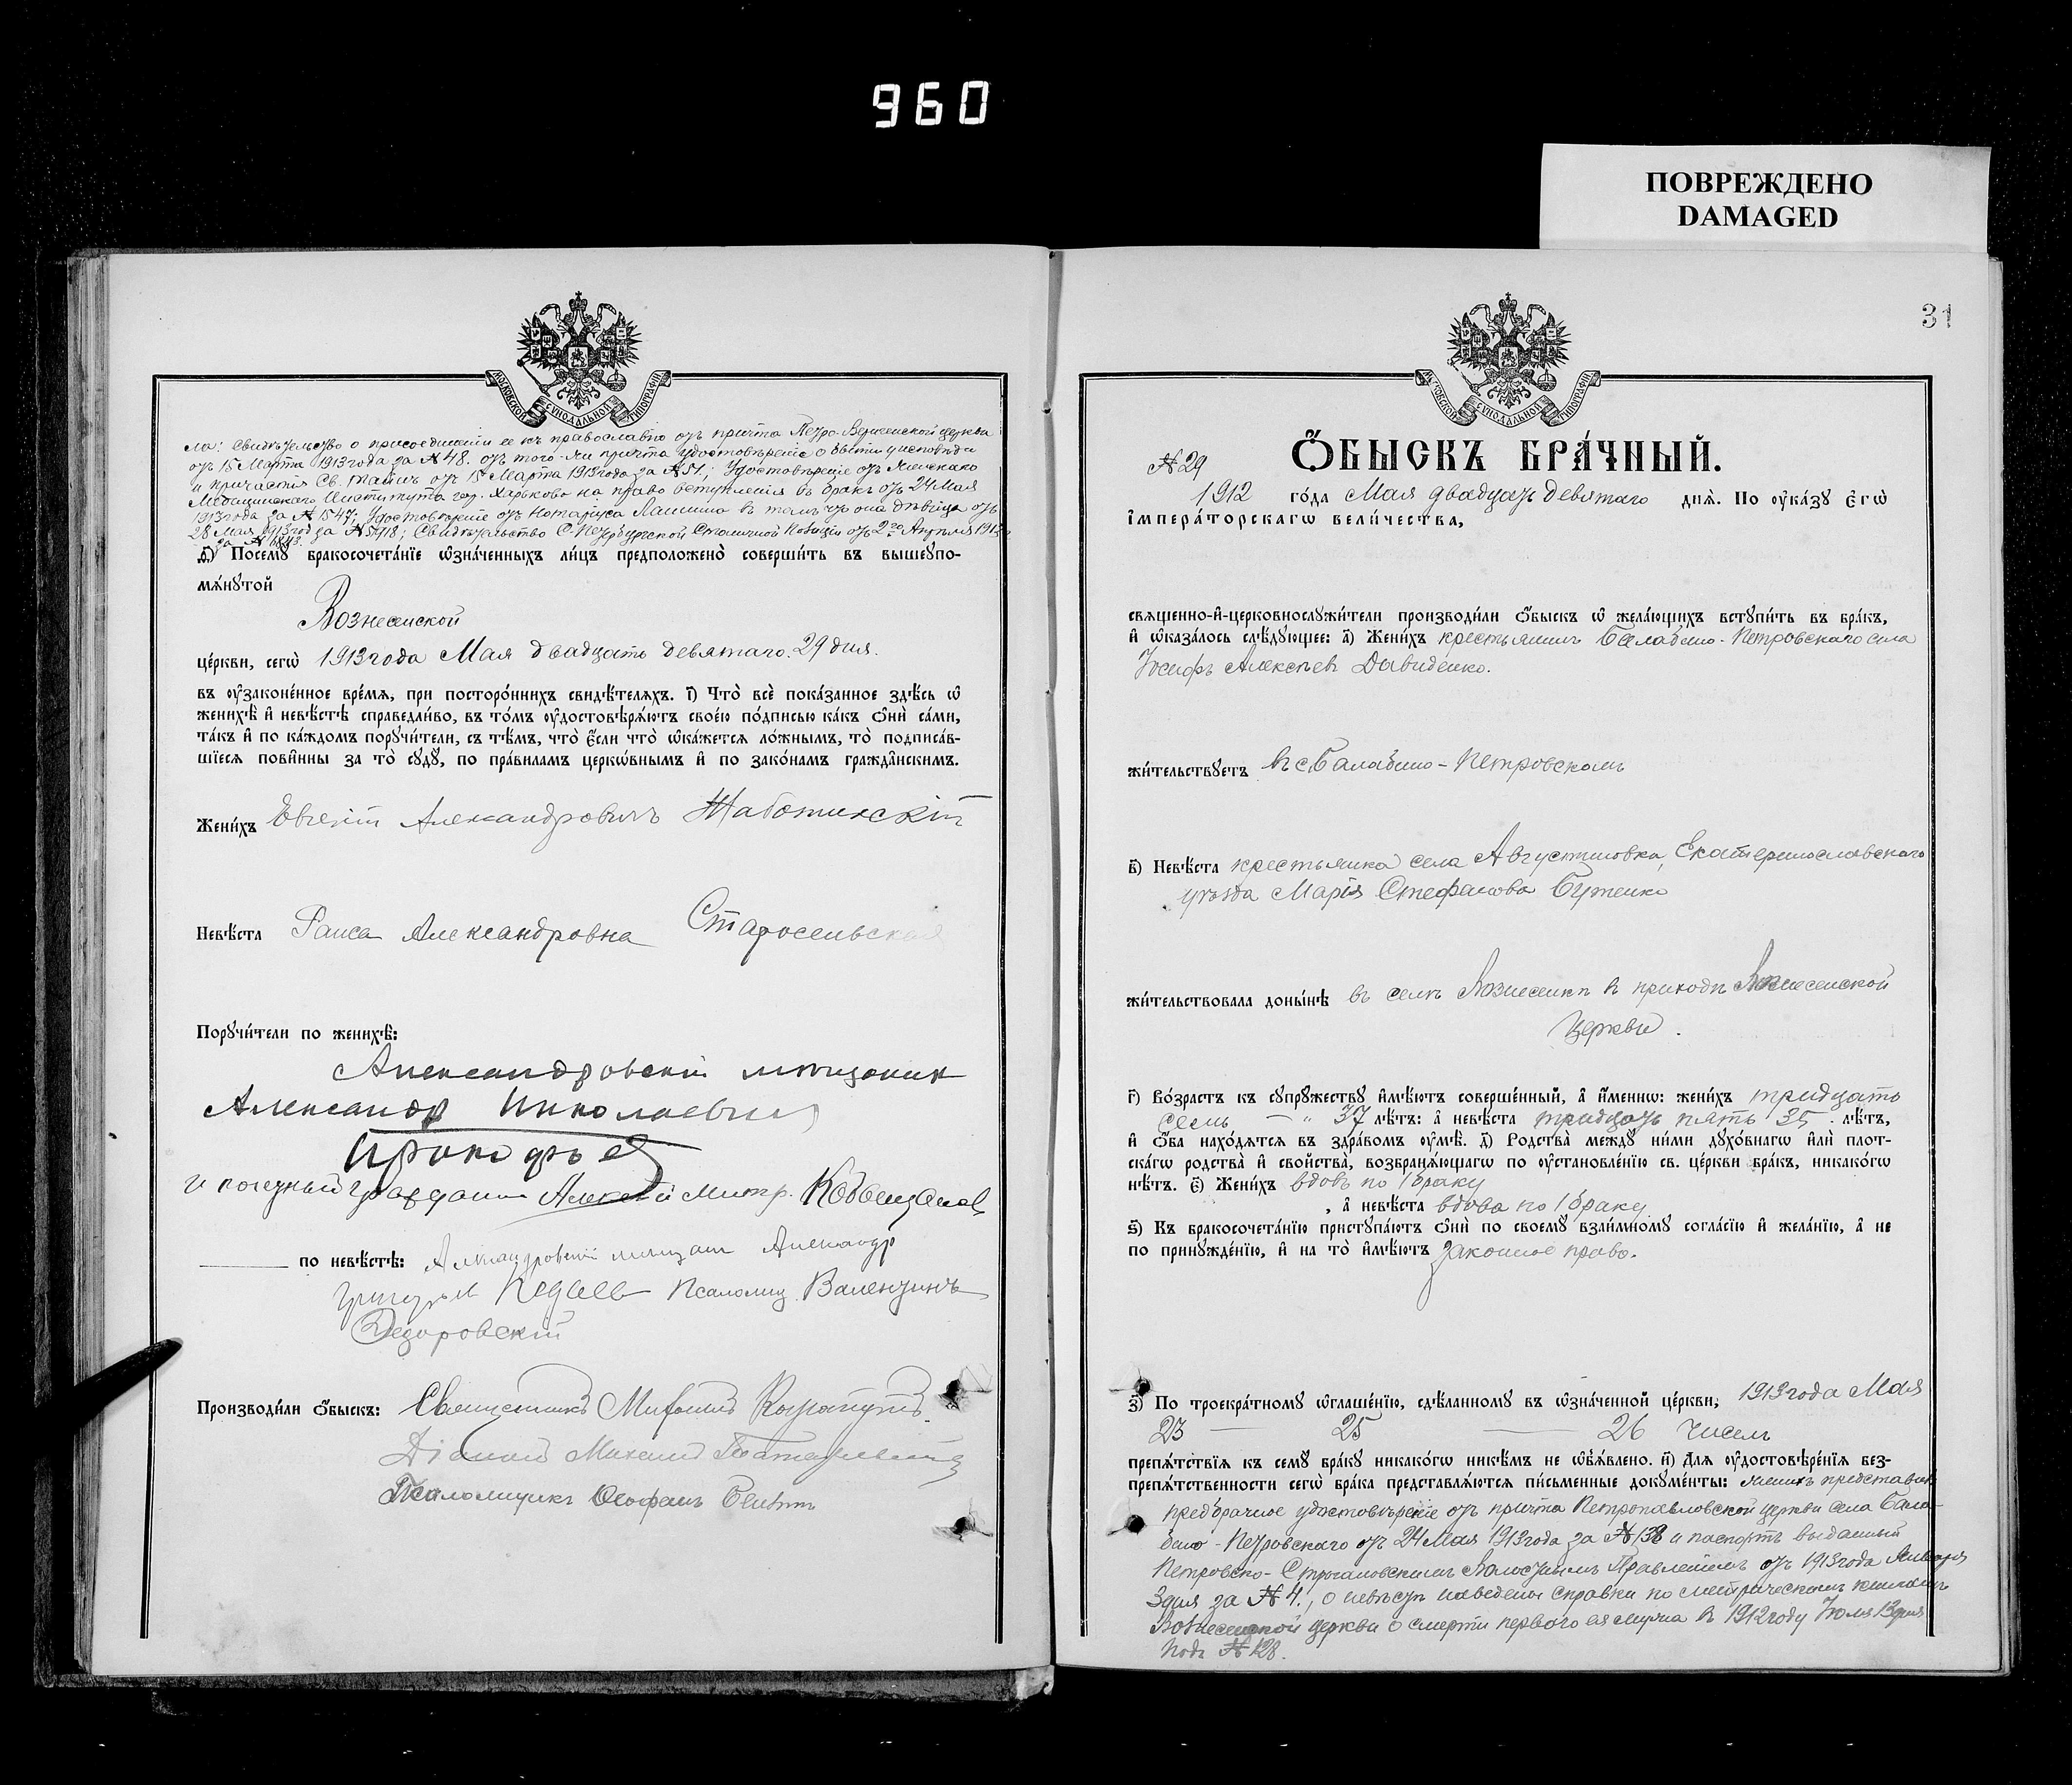 960
ПОВРЕЖДЕНО
DAMAGED
МОСКОВСКОЙ СУНОДАЛЬНОЙ ТИПОГРАФІИ
ла: Свидѣтельство о присоединеніи ее къ православію отъ причта Петро- церкви
отъ 15 Марта 1913 года за № 48. отъ того-ли причта удостовѣреніе о бытіи у исповѣди
и причастія Св. Таинъ отъ 15 Марта 1913 года за № 51; Удостовѣреніе отъ Женскаго
Медицинскаго Института гор. Харькова на право вступленія въ бракъ отъ 24 Мая
1913 года за № 1547; Удостовѣреніе отъ Нотаріуса въ томъ что она дѣвица отъ
28 Мая 1913 год за № 5918; Свидѣтельство С.-Петербургской Столичной Полиціи отъ 2го Апрѣля 1913
за №
ѳ҃) Посемꙋ̀ бракосочета́нїе ѡ҆зна́ченныхъ ли́цъ предположено̀ соверши́ть въ вышеꙋпо-
мѧ́нꙋтой
Вознесенской
це́ркви, сегѡ̀ 1913 года Мая двадцать девятаго. 29 дня.
въ ᲂу҆законе́нное вре́мѧ, при посторо́ннихъ свидѣ́телѧхъ. і҃) Что̀ всѐ пока́занное здѣ́сь ѡ҆
женихѣ̀ и҆ невѣ́стѣ справедли́во, въ то́мъ ᲂу҆достовѣрѧ́ютъ свое́ю по́дписью ка́къ ѻ҆нѝ са́ми,
та́къ и҆ по ка́ждомъ порꙋчи́тели, съ тѣ́мъ, что̀ є҆́сли что̀ ѡ҆ка́жетсѧ ло́жнымъ, то̀ подписа́в-
шїесѧ пови́нны за то̀ сꙋдꙋ̀, по пра́виламъ церко́внымъ и҆ по зако́намъ гражда́нскимъ.
Жени́хъ Евгеній Александровичъ Жаботинскій
Невѣ́ста Раиса Александровна Старосельская
Порꙋчи́тели по женихѣ̀:
Александровскій мѣщанин
Александр Николаевич
Прокофьев
и почетный гражданин Алексѣй Митр.
по невѣ́стѣ: Александровскій мещанин Александр
Псаломщ. Валентинъ
Ѳедоровскій
Производи́ли ѻ҆́быскъ: Священникъ Митрофанъ
Діаконъ Михаилъ
Псаломщикъ Ѳеофанъ
31
МОСКОВСКОЙ СУНОДАЛЬНОЙ ТИПОГРАФІИ
Ѻ҆́БЫСКЪ БРА́ЧНЫЙ.
№ 29
1912 го́да Мая двадцать девятаго днѧ̀. По ᲂу҆ка́зꙋ є҆гѡ̀
і҆мпера́торскагѡ вели́чества,
свѧще́нно-и҆-церковнослꙋжи́тели производи́ли ѻ҆́быскъ ѡ҆ жела́ющихъ встꙋпи́ть въ бра́къ,
и҆ ѡ҆каза́лось слѣ́дꙋющее: а҃) Жени́хъ крестьянинъ Балабино-Петровскаго села
Іосифъ Алексѣевъ Давиденко.
жи́тельствꙋетъ въ с. Балабино-Петровскомъ
в҃) Невѣ́ста крестьянка села Августиновка, Екатеринославскаго
уѣзда Марія Стефанова Бутенко
жи́тельствовала доны́нѣ въ селѣ Вознесенкѣ въ приходѣ Вознесенской
церкви.
г҃) Во́зрастъ къ сꙋпрꙋ́жествꙋ и҆мѣ́ютъ соверше́нный, а҆ и҆́меннѡ: жени́хъ тридцать
семь 37 лѣ́тъ: а҆ невѣ́ста тридцать пять 35. лѣ́тъ,
и҆ ѻ҆́ба нахо́дѧтсѧ въ здра́вомъ ᲂу҆мѣ̀. д҃) Родства̀ междꙋ̀ ни́ми дꙋхо́внагѡ и҆лѝ плот-
ска́гѡ родства̀ и҆ свойства̀, возбранѧ́ющагѡ по ᲂу҆становле́нїю св. це́ркви бра́къ, никако́гѡ
нѣ́тъ. є҃) Жени́хъ вдовъ по 1 браку
, а҆ невѣ́ста вдова по 1 браку
ѕ҃) Къ бракосочета́нїю пристꙋпа́ютъ ѻ҆нѝ по своемꙋ̀ взаи́мномꙋ согла́сїю и҆ жела́нїю, а҆ не
по принꙋжде́нїю, и҆ на то̀ и҆мѣ́ютъ законное право.
з҃) По троекра́тномꙋ ѡ҆глаше́нїю, сдѣ́ланномꙋ въ ѡ҆зна́ченной це́ркви, 1913 года Мая
23 — 25 — 26 Числъ
препѧ́тствїѧ къ семꙋ̀ бра́кꙋ никако́гѡ никѣ́мъ не ѡ҆б̾ѧ́влено. и҃) Длѧ ᲂу҆достовѣре́нїѧ без-
препѧ́тственности сегѡ̀ бра́ка представлѧ́ютсѧ пи́сьменные докꙋме́нты: женихъ представилъ
предбрачное удостовѣреніе отъ причта Петропавловской церкви села Бала-
бино-Петровскаго отъ 24 Мая 1913 года за № 138 и паспортъ выданный
Петровско-Строгановскимъ Волостнымъ Правленіемъ отъ 1913 года Января
3 дня за № 4., о невѣстѣ наведены справки по метрическимъ книгамъ
Вознесенской церкви о смерти перваго ея мужа въ 1912 году Іюля 13 дня
подъ № 128.